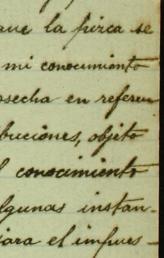 que la pieza se
mi conocimiento
osecha en referen
buciones, objeto
l conocimiento
lgunas instan-
iara el impues-